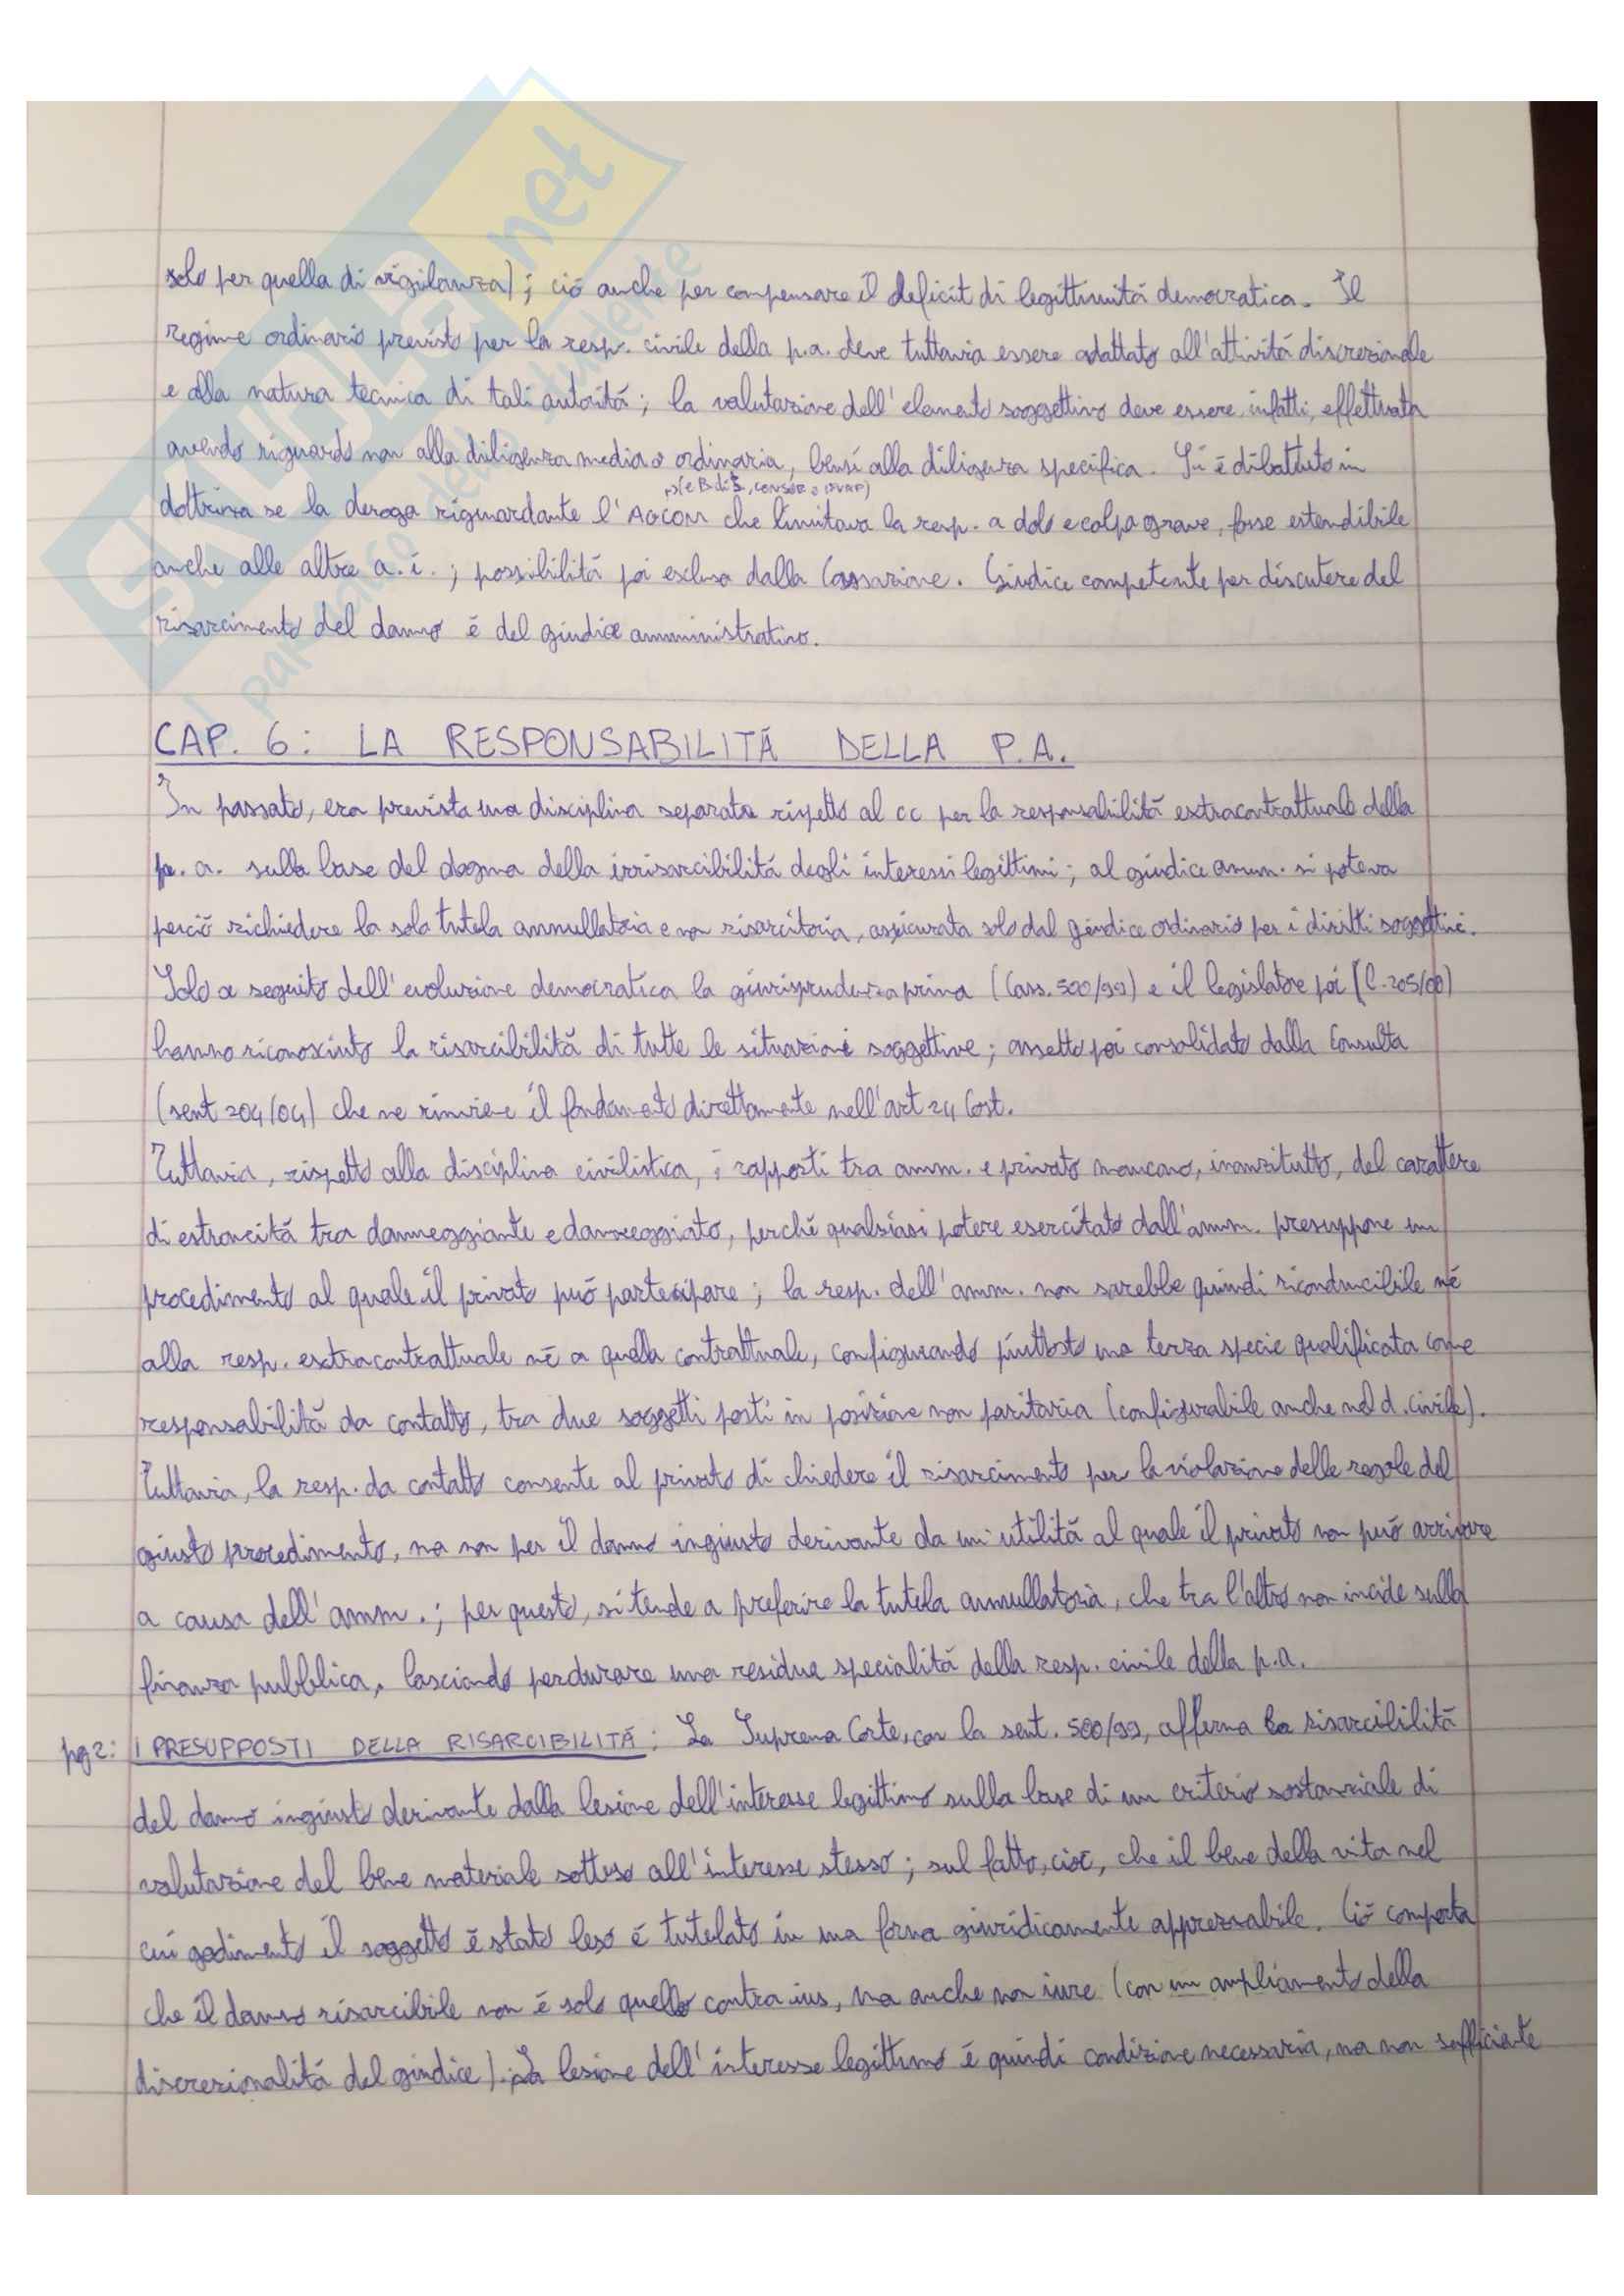 SKUOLA.net
il paradiso dello studente
solo per quella di vigilanza); ciò anche per compensare il deficit di legittimità democratica. Il
regime ordinario previsto per la resp. civile della p.a. deve tuttavia essere adattato all'attività discrezionale
e alla natura tecnica di tali autorità; la valutazione dell'elemento soggettivo deve essere, infatti, effettuata
avendo riguardo non alla diligenza media o ordinaria, bensì alla diligenza specifica. Si è dibattuto in
CONSOB e IVAP)
dottrina se la deroga riguardante l'AGCOM che limitava la resp. a dolo e colpa grave, fosse estendibile
anche alle altre a.i.; possibilità poi esclusa dalla Cassazione. Giudice competente per discutere del
risarcimento del danno è del giudice amministrativo.
CAP. 6: LA RESPONSABILITÀ DELLA P.A.
In passato, era prevista una disciplina separata rispetto al cc per la responsabilità extracontrattuale della
p.a. sulla base del dogma della irrisarcibilità degli interessi legittimi; al giudice amm. si poteva
perciò richiedere la sola tutela annullatoria e non risarcitoria, assicurata solo dal giudice ordinario per i diritti soggettivi.
Solo a seguito dell'evoluzione democratica la giurisprudenza prima (Cass. 500/99) e il legislatore poi (l. 205/00)
hanno riconosciuto la risarcibilità di tutte le situazioni soggettive; assetto poi consolidato dalla Consulta
(sent 204/04) che ne rinviene il fondamento direttamente nell'art 24 Cost.
Tuttavia, rispetto alla disciplina civilistica, i rapporti tra amm. e privato mancano, innanzitutto, del carattere
di estraneità tra danneggiante e danneggiato, perché qualsiasi potere esercitato dall'amm. presuppone un
procedimento al quale il privato può partecipare; la resp. dell'amm. non sarebbe quindi riconducibile né
alla resp. extracontrattuale né a quella contrattuale, configurando piuttosto una terza specie qualificata come
responsabilità da contatto, tra due soggetti posti in posizione non paritaria (configurabile anche nel d. civile).
Tuttavia, la resp. da contatto consente al privato di chiedere il risarcimento per la violazione delle regole del
giusto procedimento, ma non per il danno ingiusto derivante da un'utilità al quale il privato non può arrivare
a causa dell'amm.; per questo, si tende a preferire la tutela annullatoria, che tra l'altro non incide sulla
finanza pubblica, lasciando perdurare una residua specialità della resp. civile della p.a.
pg 2: I PRESUPPOSTI DELLA RISARCIBILITÀ: La Suprema Corte, con la sent. 500/99, afferma la risarcibilità
del danno ingiusto derivante dalla lesione dell'interesse legittimo sulla base di un criterio sostanziale di
valutazione del bene materiale sotteso all'interesse stesso; sul fatto, cioè, che il bene della vita nel
cui godimento il soggetto è stato leso è tutelato in una forma giuridicamente apprezzabile. Ciò comporta
che il danno risarcibile non è solo quello contra ius, ma anche non iure (con un ampliamento della
discrezionalità del giudice). La lesione dell'interesse legittimo è quindi condizione necessaria, ma non sufficiente